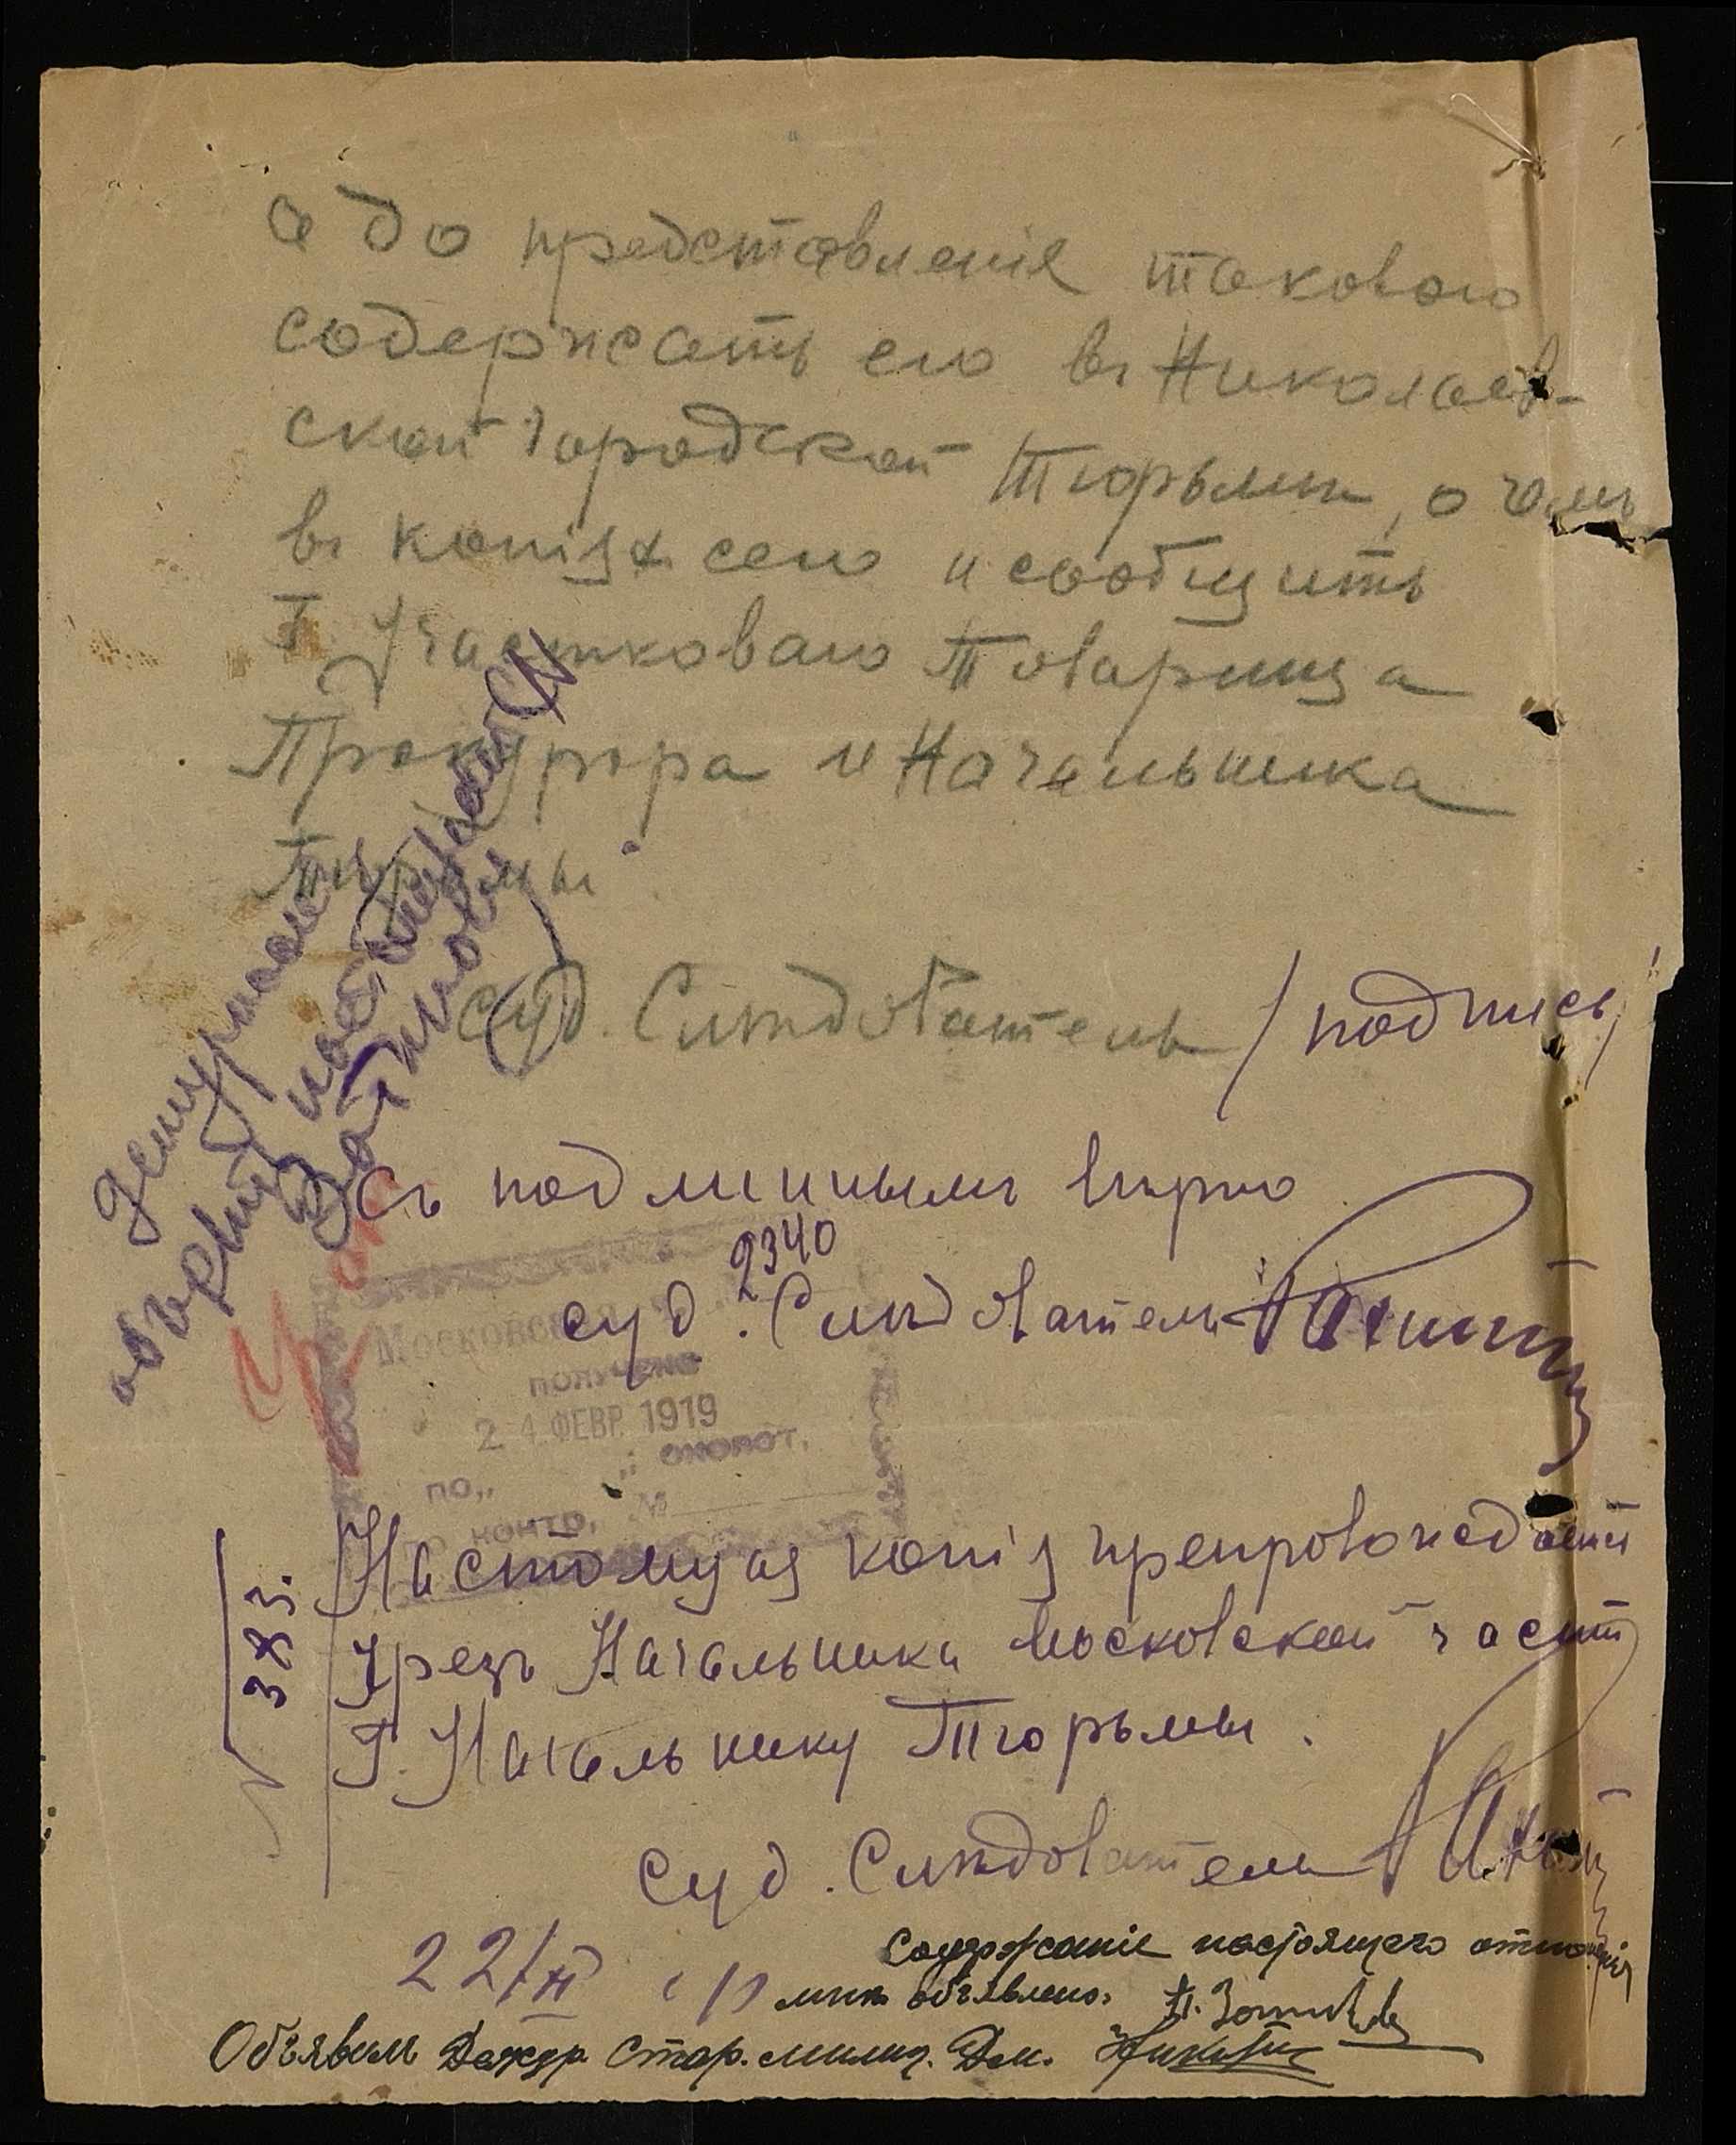 а до представленія такового
содержать его въ Николаев-
ской городской Тюрьмѣ, о чемъ
въ копіях сего и сообщить
Г. Участковаго Товарища
Прокурора и Начальника
Тюрьмы
Суд. Слѣдователь /подпись/
Съ подлиннымъ вѣрно
2340
Суд. Слѣдователь
Московск
ПОЛУЧЕНО
24 ФЕВР. 1919
ПО „ “ ОКОЛОТ.
КОНТР. №
383.
Настоящая копія препровождается
чрезъ Начальника Московской части
Г. Начальнику Тюрьмы.
Суд. Слѣдователь
22/II
Содержаніе настоящего отношенія
мнѣ объявлено.
Объявилъ Дежур. Стар. милиц.